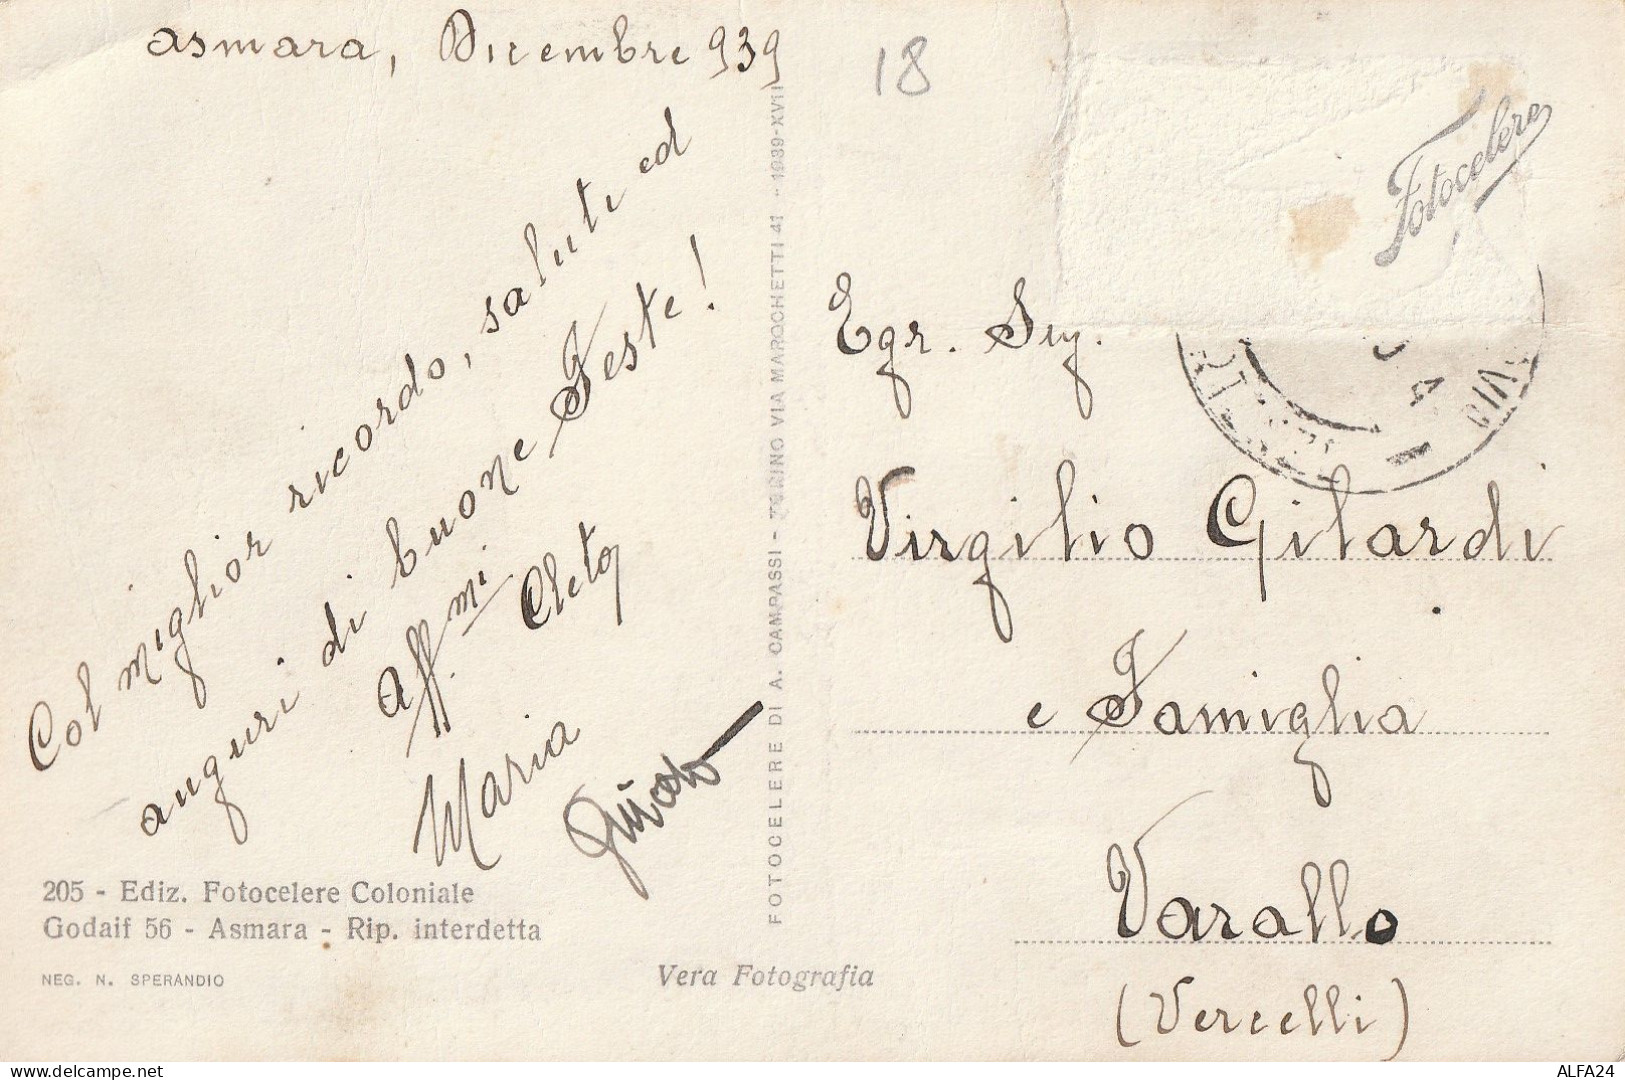 Asmara, Dicembre 939
18
Fotocelere
Col miglior ricordo, saluti ed
auguri di buone Feste!
Aff.mi
Cleto
Maria
Egr. Sig.
Virgilio Gilardi
e Famiglia
Varallo
(Vercelli)
FOTOCELERE DI A. CAMPASSI - TORINO VIA MAROCHETTI 41 - 1939-XVII
205 - Ediz. Fotocelere Coloniale
Godaif 56 - Asmara - Rip. interdetta
NEG. N. SPERANDIO
Vera Fotografia
delcampe.net
ALFA24